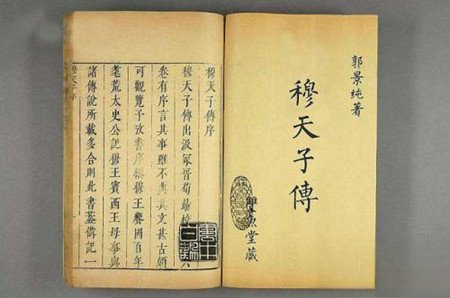 郭景純著
穆天子傳
堂藏
穆天子傳序
穆天子傳出汲冢晉荀勗校六
卷有序言其事雖不典其文甚古頗
可觀覽予攷書序稱穆王饗國百年
耄荒太史公記穆王賓西王母事與
諸傳說所載多合則此書蓋備記一